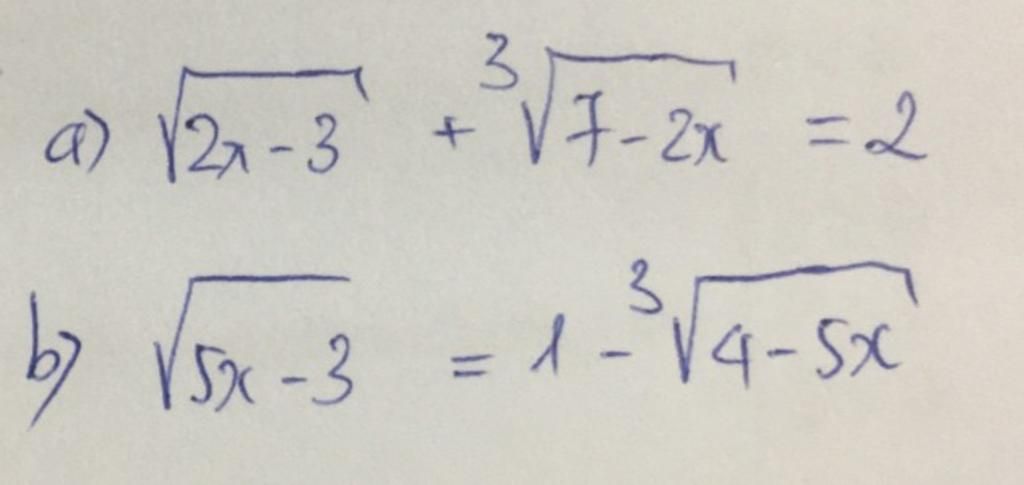 a) √(2x-3) + ³√(7-2x) = 2
b) √(5x-3) = 1 - ³√(4-5x)